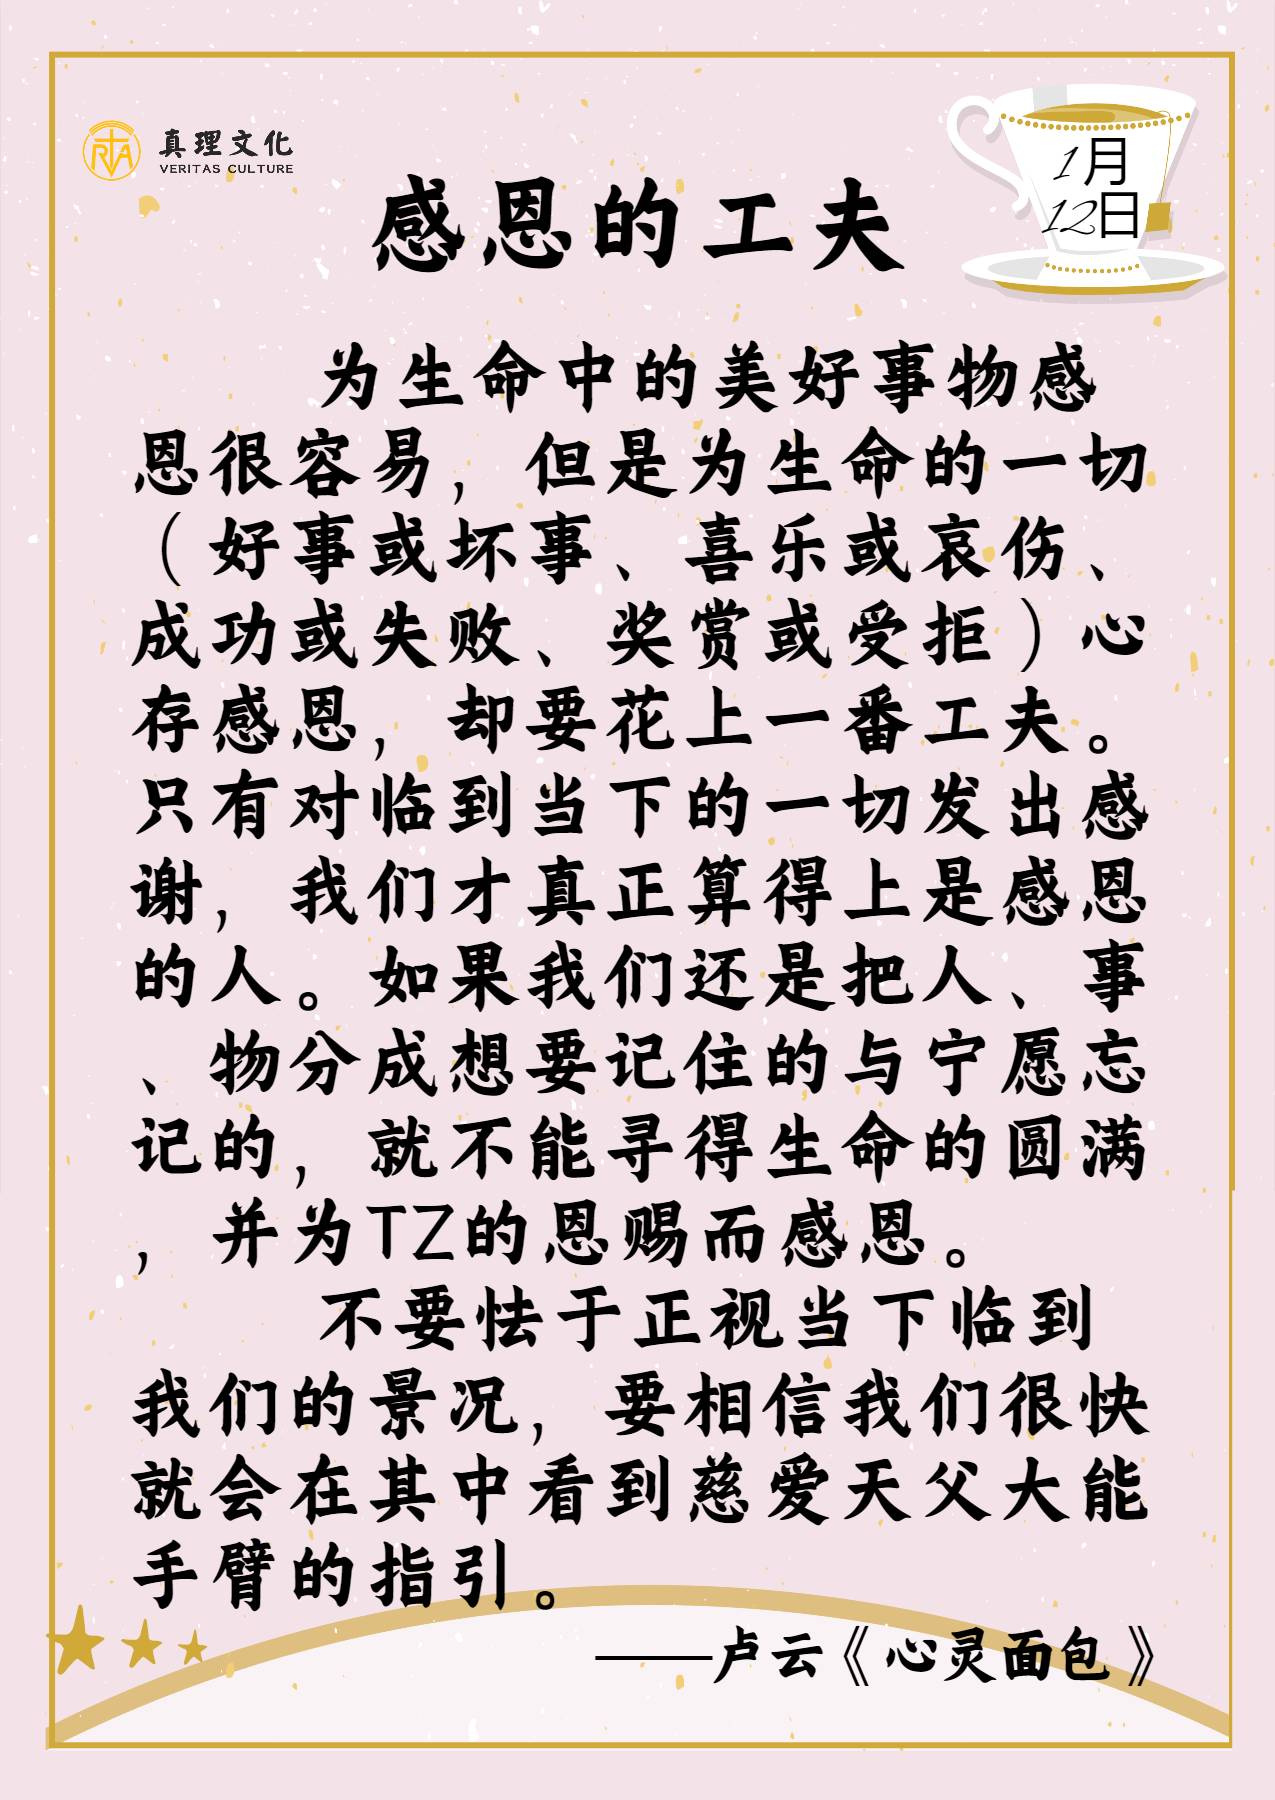 真理文化
VERITAS CULTURE
1月
12日
感恩的工夫
为生命中的美好事物感
恩很容易，但是为生命的一切
（好事或坏事、喜乐或哀伤、
成功或失败、奖赏或受拒）心
存感恩，却要花上一番工夫。
只有对临到当下的一切发出感
谢，我们才真正算得上是感恩
的人。如果我们还是把人、事
、物分成想要记住的与宁愿忘
记的，就不能寻得生命的圆满
，并为TZ的恩赐而感恩。
不要怯于正视当下临到
我们的景况，要相信我们很快
就会在其中看到慈爱天父大能
手臂的指引。
——卢云《心灵面包》